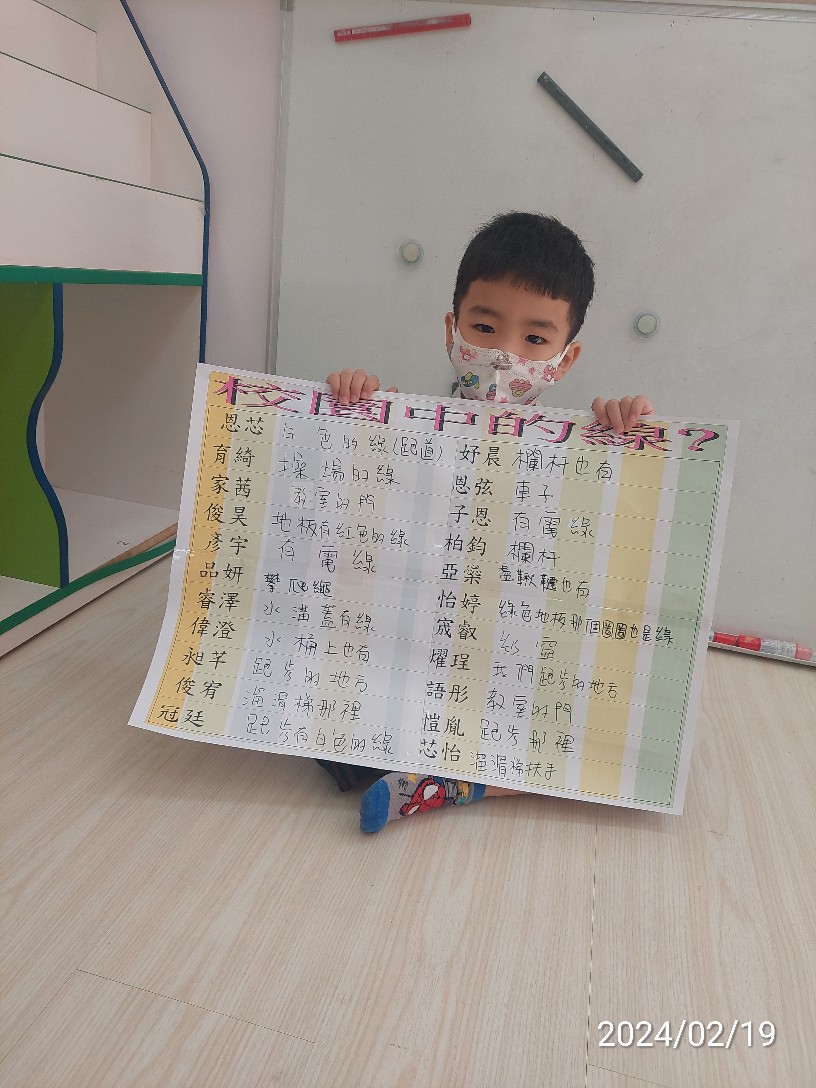 校園中的線?
恩芯 白色的線(跑道)
育綺 操場的線
家茜 教室的門
俊昊 地板有紅色的線
彥宇 有電線
品妍 攀爬繩
睿澤 水溝蓋有線
偉澄 水桶上也有
昶芊 跑步的地方
俊宥 溜滑梯那裡
冠廷 跑步有白色的線
妤晨 欄杆也有
恩弦 車子
子恩 有電線
柏鈞 欄杆
亞築 盪鞦韆也有
怡婷 綠色地板那個圈圈也是線
宬叡 紗窗
燿珵 我們跑步的地方
語彤 教室的門
愷胤 跑步那裡
芯怡 溜滑梯扶手
2024/02/19